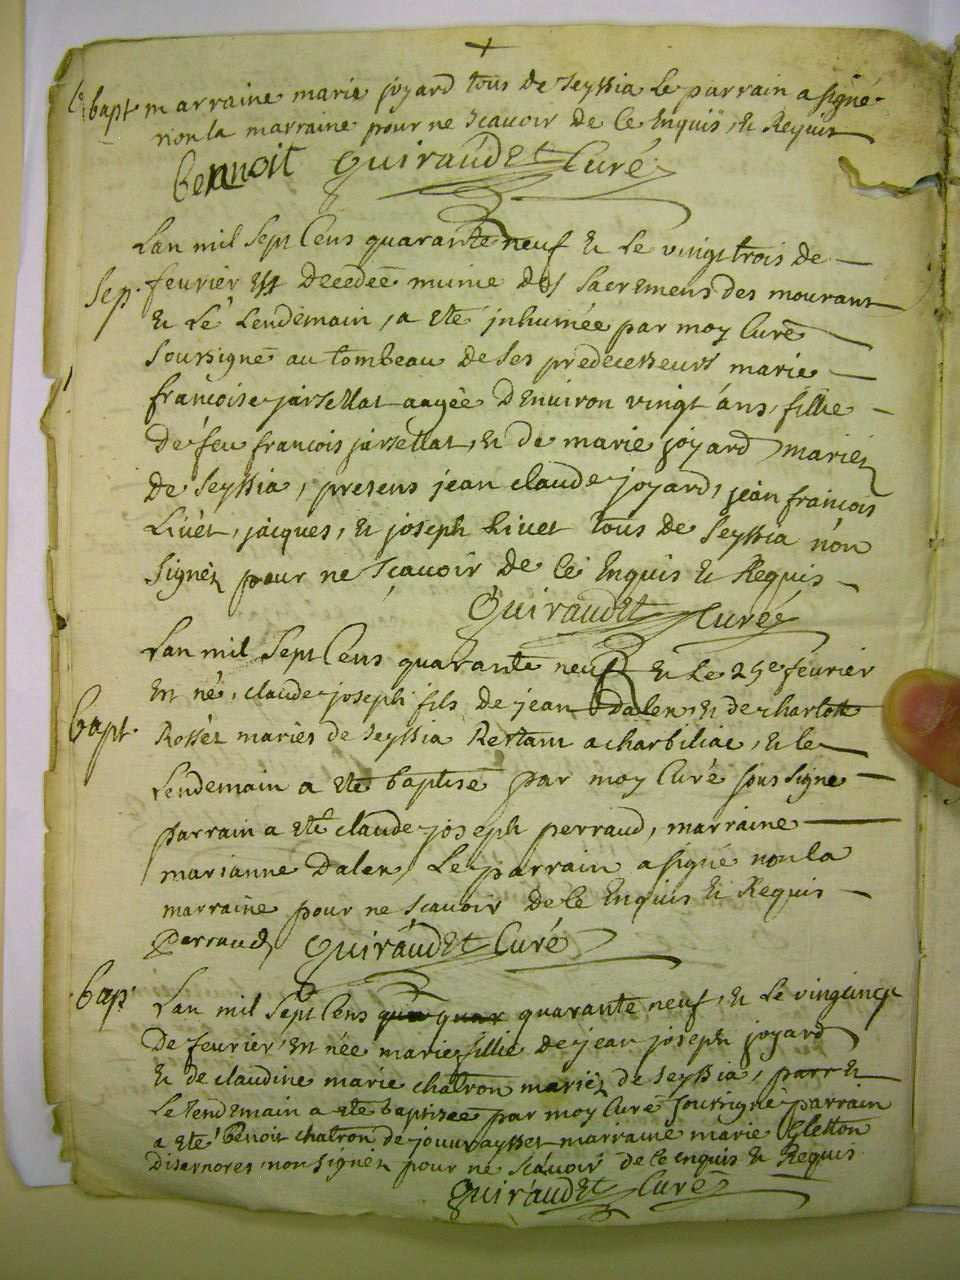 bapt marraine marie joyard tous de Seyssia Le parrain a signé
non la marraine pour ne scavoir de ce Enquis, et Requis
Bennoit Guiraudet Curé
Lan mil Sept Cens quarante neuf et Le vingt trois de
Sep. fevrier est Decedeé munie des Sacremens des mourant
et Le Lendemain, a eté jnhumée par moy Curé
Soussigné au tombeau de Ses predecesseurs marie
francoise jarsellat aagée Denviron vingt ans, fillie
de feu francois jarsellat, et de marie joyard mariez
de Seyssia, presens jean claude joyard, jean francois
Livet, jacques, et joseph Livet tous de Seyssia non
Signéz pour ne Sçavoir de ce Enquis et Requis
Guiraudet Curé
Lan mil Sept Cens quarante neuf et Le 25e fevrier
est né, claude joseph fils de jean Dalen, et de charlotte
bapt. Rosset mariés de Seyssia Restant a charbiliac, et le
Lendemain a eté baptisé par moy Curé sous Signé
parrain a eté claude joseph perraud, marraine
marianne Dalen, Le parrain a signé non la
marraine pour ne Scavoir de Ce Enquis et Requis
Perraud, Guiraudet Curé
bap. Lan mil Sept Cens quarante neuf, et Le vingcinq
de fevrier est née marie fillie de jean joseph joyard
et de claudine marie chatron mariéz de Seyssia, parr et
Le lendemain a eté baptisée par moy Curé Soussigné parrain
a eté Benoit chatron de jouvraysset marraine marie Gletton
Disernores non signéz pour ne Scavoir de ce enquis et Requis
Guiraudet Curé